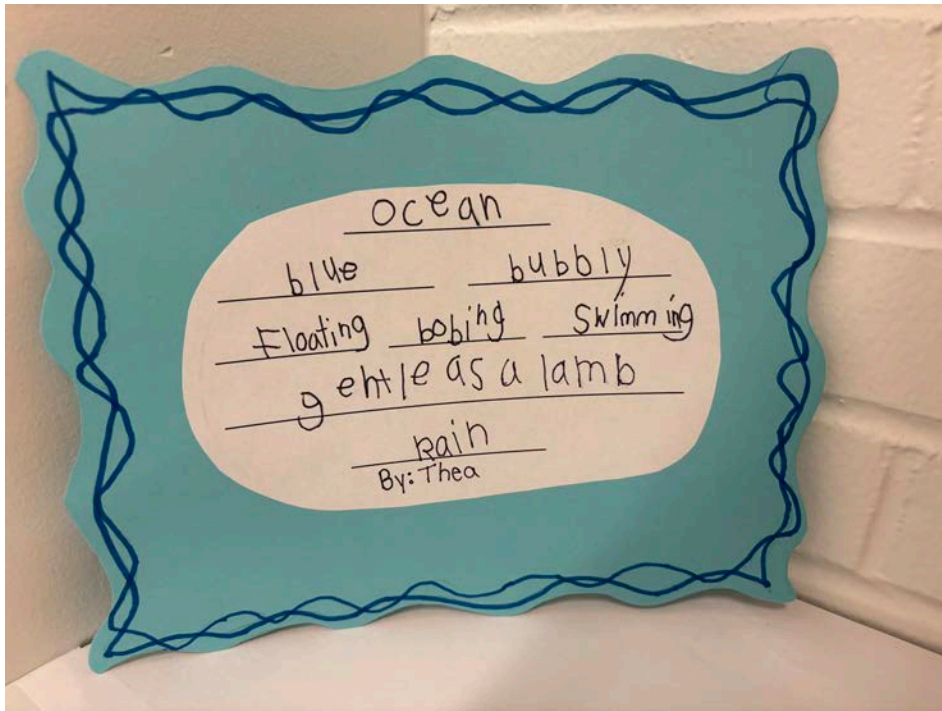 ocean
blue bubbly
Floating bobing Swimming
gentle as a lamb
Rain
By: Thea